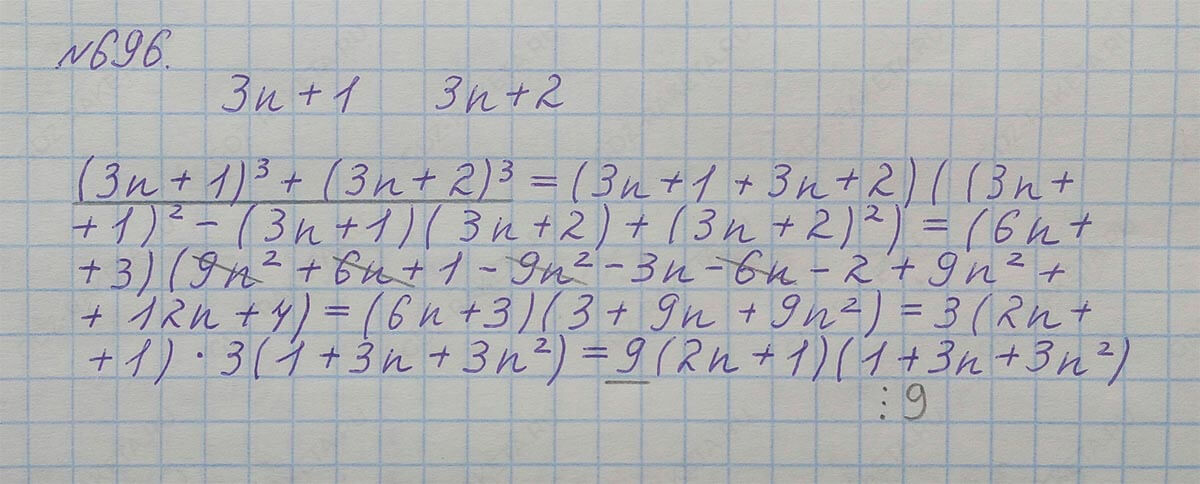 №696.
3n+1 3n+2
(3n+1)³+(3n+2)³=(3n+1+3n+2)((3n+
+1)²-(3n+1)(3n+2)+(3n+2)²)=(6n+
+3)(9n²+6n+1-9n²-3n-6n-2+9n²+
+12n+4)=(6n+3)(3+9n+9n²)=3(2n+
+1)·3(1+3n+3n²)=9(2n+1)(1+3n+3n²)
⋮9